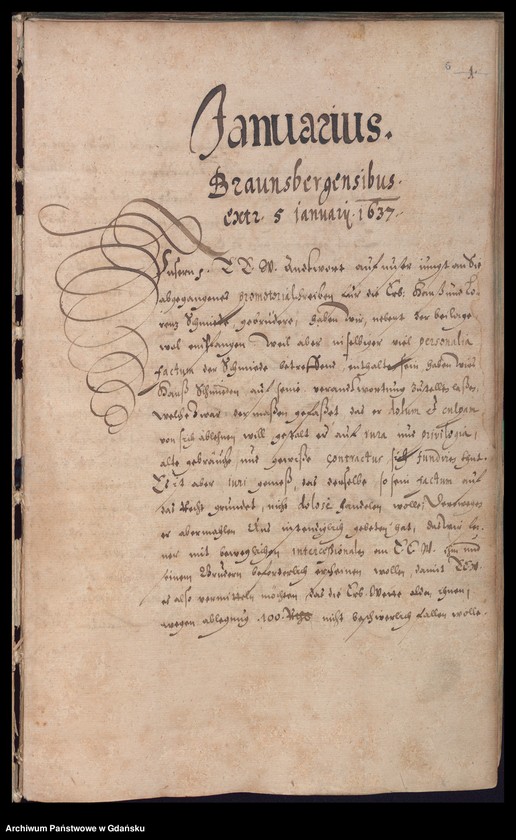 6 1.
Januarius.
Braunsbergensibus.
extr. 5 januarij. 1637.
Unsern p. E E W. Andtwort auf unser jüngst an Sie
abgegangenes promotorialschreiben für die Erb: Hans und Lo-
renz Schmiede gebrüdere, haben wir, nebenst der beilage
wol empfangen Weil aber in selbiger viel personalia
factum der Schmiede betreffend, enthalten sein haben wir
Hanß Schmieden auf seine verandtwortung zustellen lassen,
welche zwar dermaßen gefaßet das er dolum et culpam
von sich ablehnen will gestalt er auf jura und privilegia,
alte gebräuche, und gewisse contractus sich fundiren thut.
Es ist aber juri gemeß, das derselbe so sein factum auf
das Recht gründet, nicht dolose handelen wolle; Derwegen
er abermahlen Uns instendiglich gebeten hat, das wir fer-
ner mit beweglichen intercessionales an E E W. ihm und
seinem Brudern beforderlich erscheinen wollen, damit E E W.
es also vermitteln möchten, das die Erb. Werke alda, ihnen,
wegen ablegung 100. Rthr nicht beschwerlich fallen wolle.
Archiwum Państwowe w Gdańsku